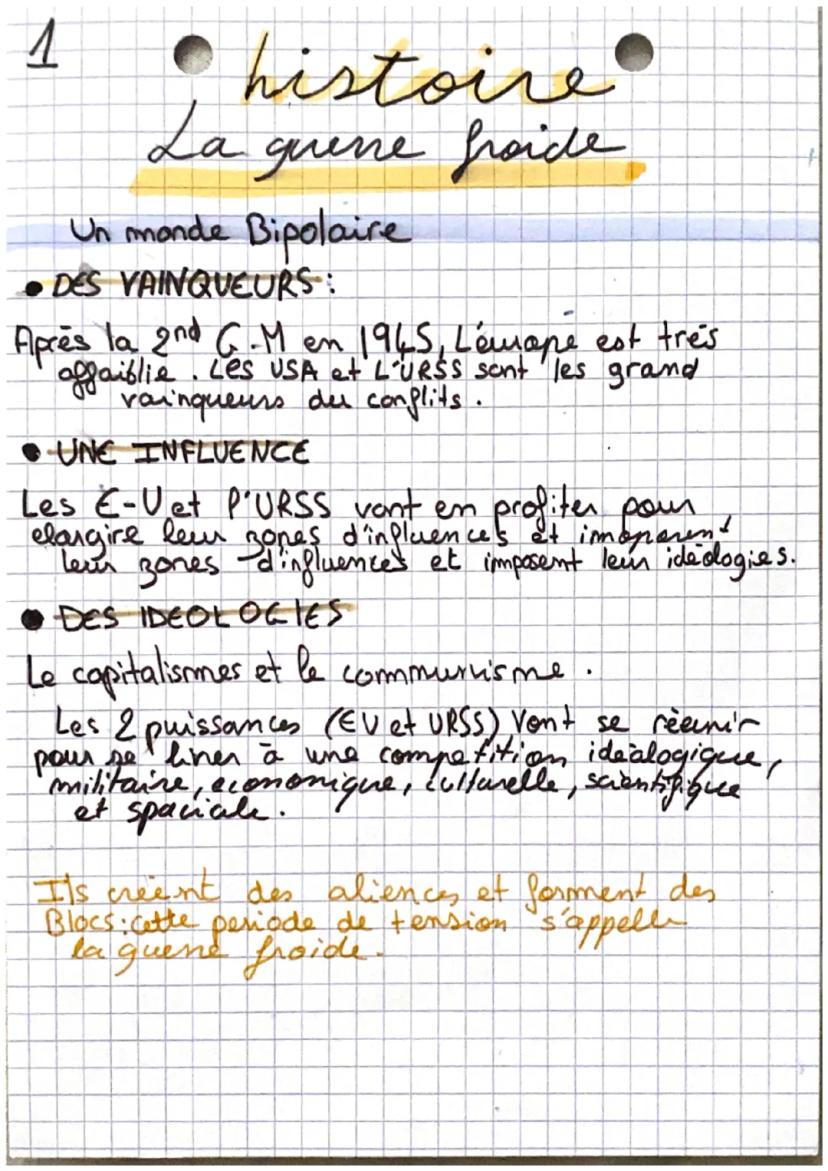 1
histoire
La guerre froide
Un monde Bipolaire
• DES VAINQUEURS :
Après la 2nd G.M en 1945, L'europe est très
affaiblie. Les USA et L'URSS sont les grand
vainqueurs du conflits.
• UNE INFLUENCE
Les E-U et l'URSS vont en profiter pour
elargire leur zones d'influences et imposent
leur zones d'influences et imposent leur idéologies.
• DES IDEOLOGIES
Le capitalismes et le communisme.
Les 2 puissances (EU et URSS) Vont se réeunir
pour se livrer à une compétition idéalogique,
militaire, economique, culturelle, scientifique
et spaciale.
Ils créent des aliences et forment des
Blocs : cette periode de tension s'appelle
la guerre froide.